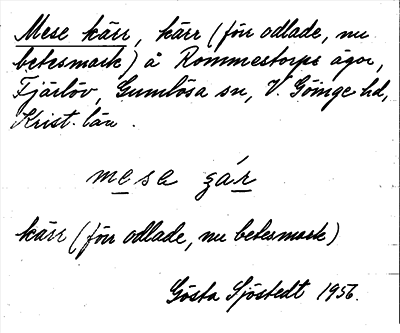 Mese kärr, kärr (förr odlade, nu
betesmark) å Rommestorps ägor,
Fjärlöv, Gumlösa sn, V. Göinge hd,
Krist. län.
mese gár
kärr (förr odlade, nu betesmark)
Gösta Sjöstedt 1956.